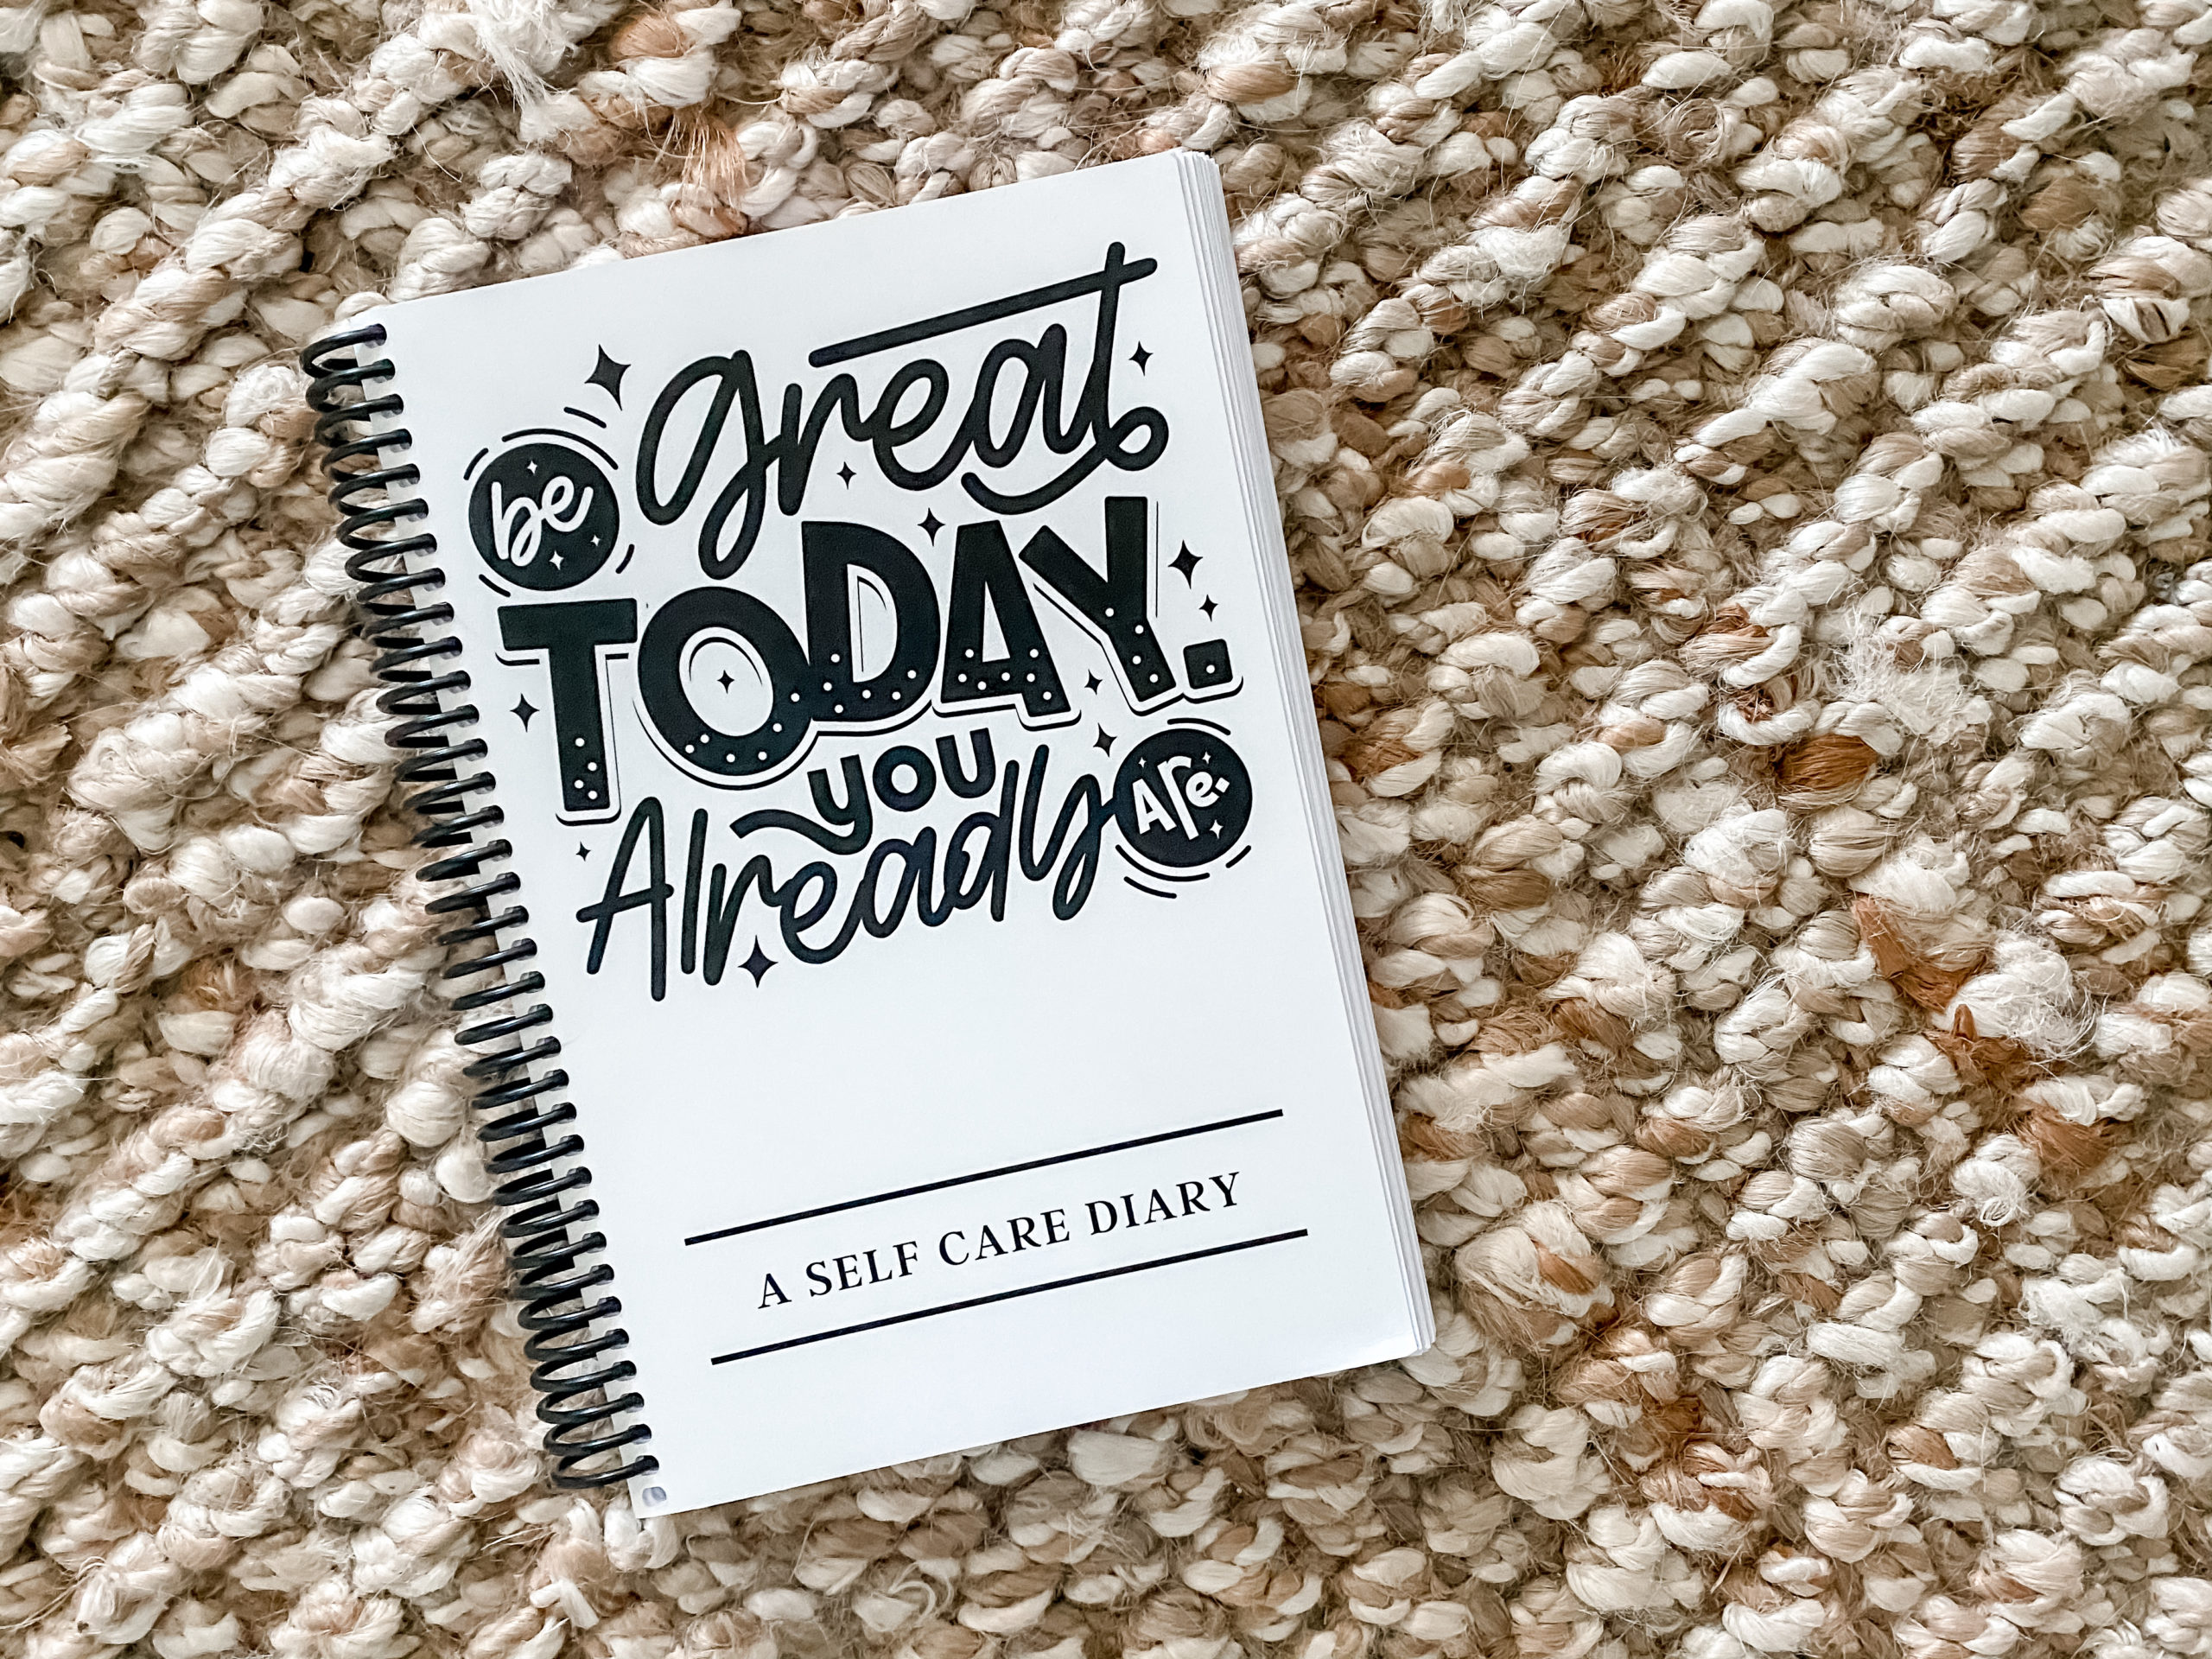 be great
TODAY.
you
Already Are.
A SELF CARE DIARY